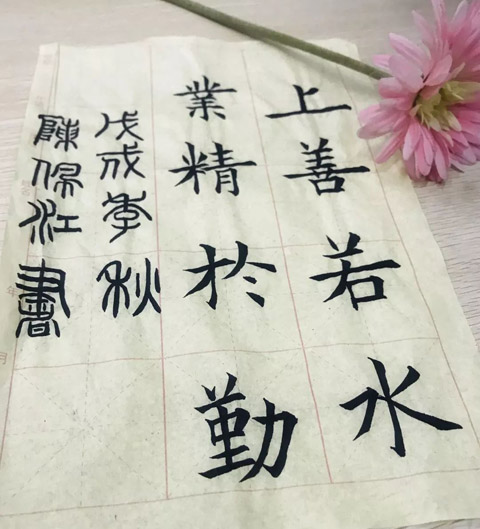 上善若水
業精於勤
戊戌季秋
陳佩江書